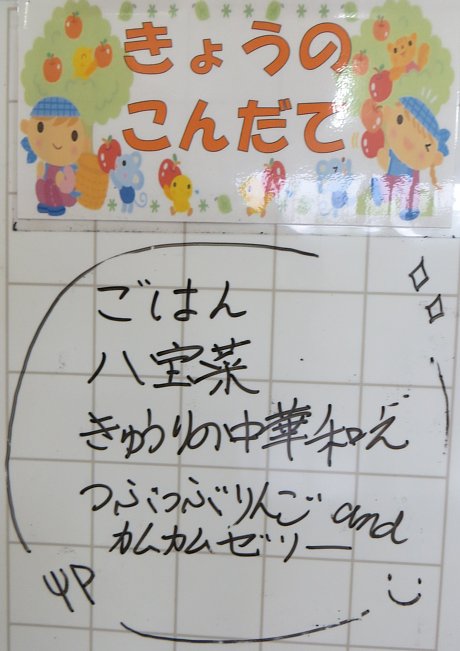 きょうの
こんだて
ごはん
八宝菜
きゅうりの中華和え
つぶつぶりんご and
カムカムゼリー